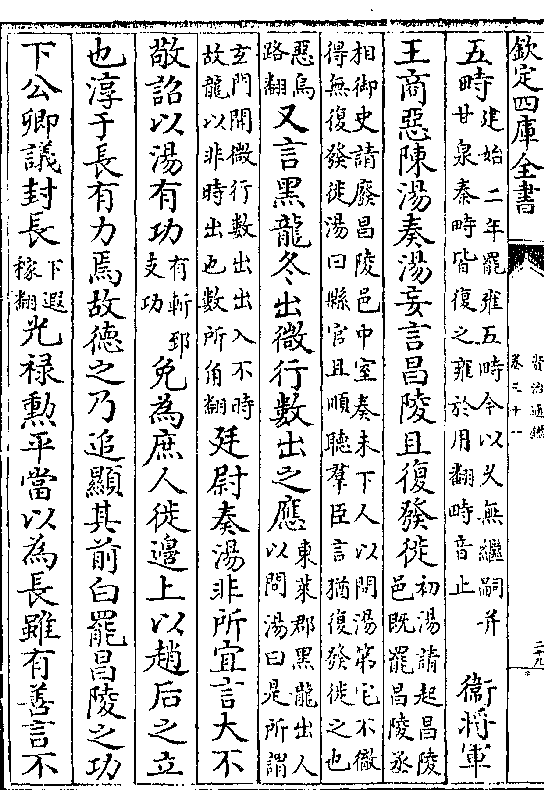 欽定四庫全書
資治通鑑
卷三十一
五畤
建始二年罷雍五畤今以久無繼嗣并
甘泉泰畤皆復之雍於用翻畤音止
衛將軍
王商惡陳湯奏湯妄言昌陵且復發徙
初湯請起昌陵
邑既罷昌陵丞
相御史請廢昌陵邑中室奏未下人以問湯第宅不徹
得無復發徙湯曰縣官且順聽羣臣言猶復發徙之也
惡烏
路翻
又言黑龍冬出微行數出之應
東萊郡黑龍出人
以問湯曰是所謂
玄門開微行數出出入不時
故龍以非時出也數所角翻
廷尉奏湯非所宜言大不
敬詔以湯有功
有斬郅
支功
免為庶人徙邊上以趙后之立
也淳于長有力焉故德之乃追顯其前白罷昌陵之功
下公卿議封長
下遐
稼翻
光祿勲平當以為長雖有善言不